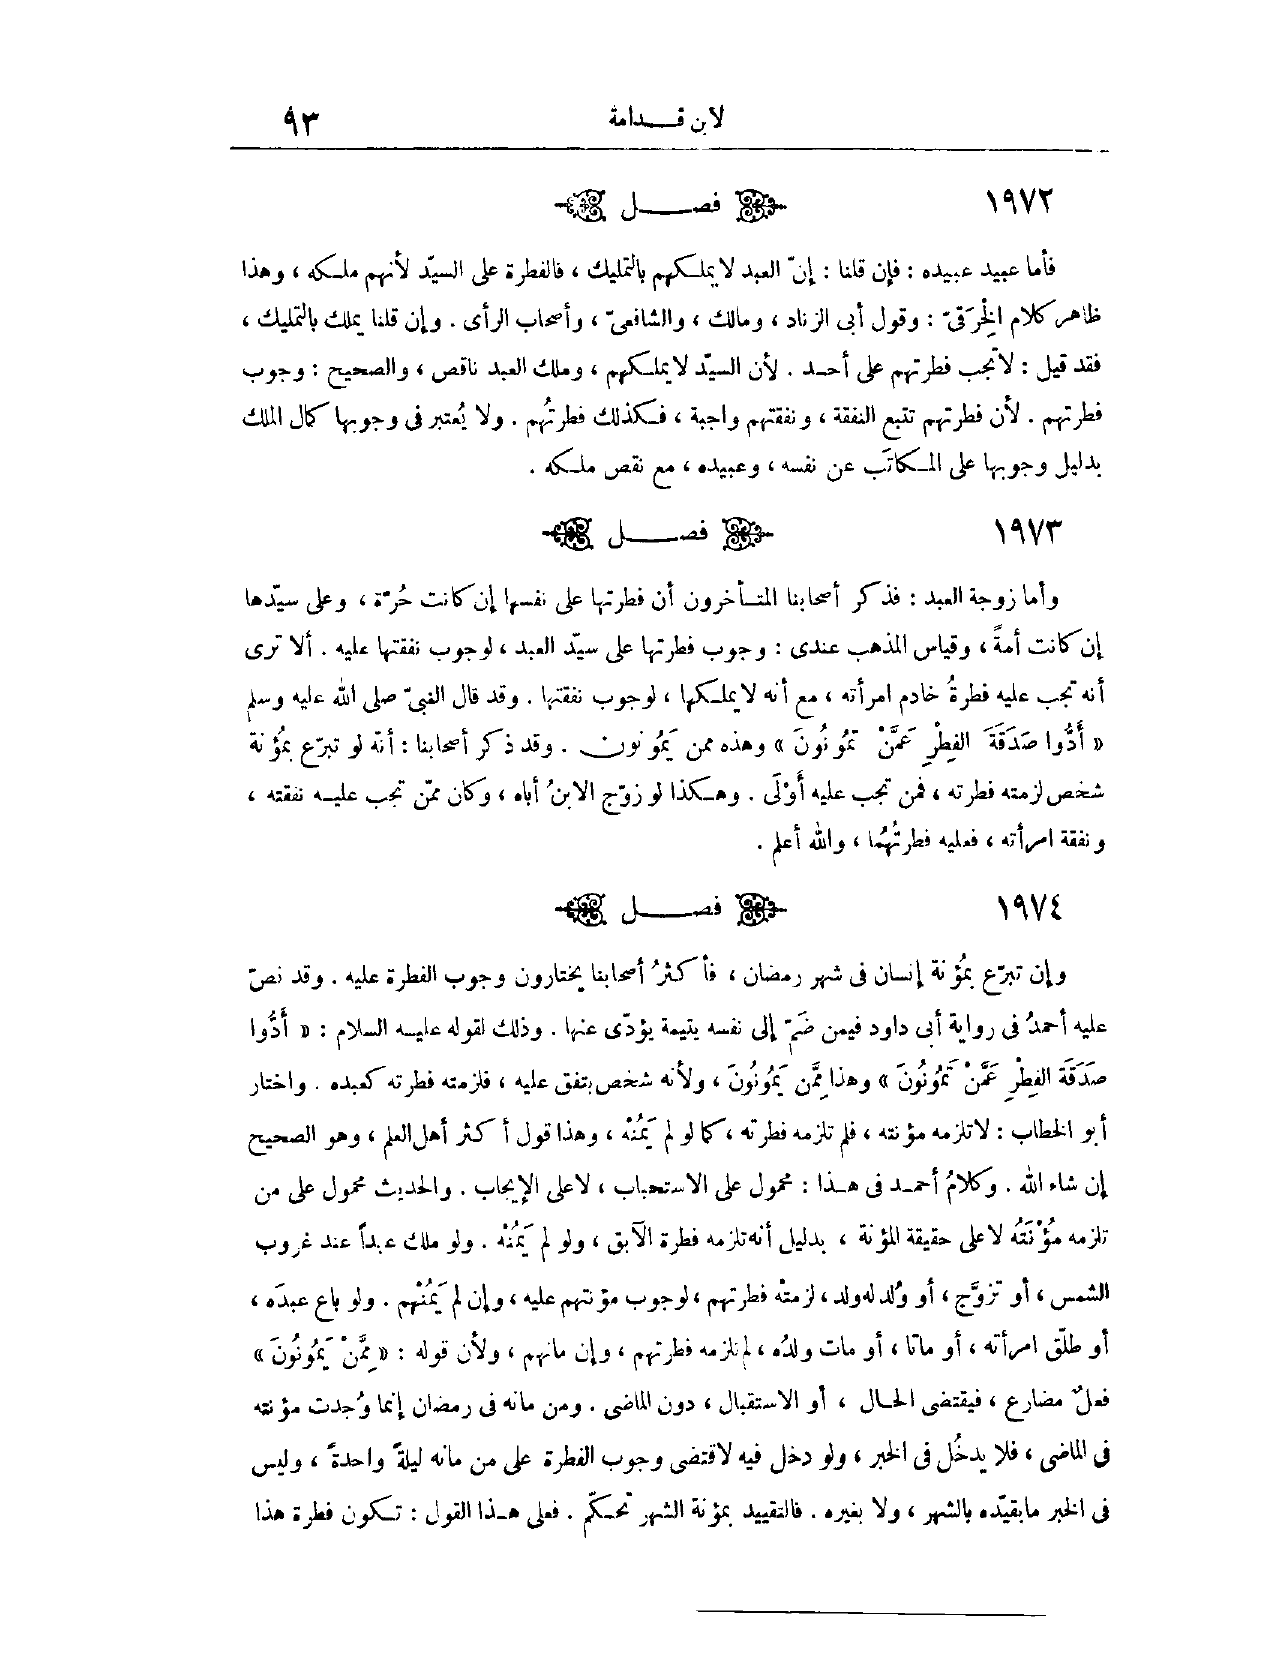 لابن قــدامة ٩٣
١٩٧٢ فصــل
فأما عبيد عبيده : فإن قلنا : إنّ العبد لا يملكهم بالتمليك ، فالفطرة على السيّد لأنهم ملكه ، وهذا
ظاهر كلام الخِرَقىّ : وقول أبى الزناد ، ومالك ، والشافعىّ ، وأصحاب الرأى . وإن قلنا يملك بالتمليك ،
فقد قيل : لا تجب فطرتهم على أحد . لأن السيّد لا يملكهم ، وملك العبد ناقص ، والصحيح : وجوب
فطرتهم . لأن فطرتهم تتبع النفقة ، ونفقتهم واجبة ، فكذلك فطرتُهم . ولا يُعتبر فى وجوبها كمال الملك
بدليل وجوبها على المكاتَب عن نفسه ، وعبيده ، مع نقص ملكه .
١٩٧٣ فصــل
وأما زوجة العبد : فذكر أصحابنا المتأخرون أن فطرتها على نفسها إن كانت حُرّة ، وعلى سيّدها
إن كانت أمةً ، وقياس المذهب عندى : وجوب فطرتها على سيّد العبد ، لوجوب نفقتها عليه . ألا ترى
أنه تجب عليه فطرةُ خادم امرأته ، مع أنه لا يملكها ، لوجوب نفقتها . وقد قال النبىّ صلى الله عليه وسلم
« أَدُّوا صَدَقَةَ الفِطْرِ عَمَّنْ تَمُونُونَ » وهذه ممن يَمُونون . وقد ذكر أصحابنا : أنه لو تبرّع بمُؤنة
شخص لزمته فطرته ، فمن تجب عليه أَوْلَى . وهكذا لو زوّج الابنُ أباه ، وكان ممّن تجب عليه نفقته ،
ونفقة امرأته ، فعليه فطرتُهُما ، والله أعلم .
١٩٧٤ فصــل
وإن تبرّع بمُؤنة إنسان فى شهر رمضان ، فأكثرُ أصحابنا يختارون وجوب الفطرة عليه . وقد نصّ
عليه أحمدُ فى رواية أبى داود فيمن ضَمّ إلى نفسه يتيمة يؤدّى عنها . وذلك لقوله عليه السلام : « أَدُّوا
صَدَقَةَ الفِطْرِ عَمَّنْ تَمُونُونَ » وهذا مِمَّن يَمُونُونَ ، ولأنه شخص ينفق عليه ، فلزمته فطرته كعبده . واختار
أبو الخطاب : لا تلزمه مؤنته ، فلم تلزمه فطرته ، كما لو لم يَمُنْه ، وهذا قول أكثر أهل العلم ، وهو الصحيح
إن شاء الله . وكلامُ أحمد فى هذا : محمول على الاستحباب ، لا على الإيجاب . والحديث محمول على من
تلزمه مُؤْنَتُه لا على حقيقة المؤنة ، بدليل أنه تلزمه فطرة الآبق ، ولو لم يَمُنْه . ولو ملك عبداً عند غروب
الشمس ، أو تزوَّج ، أو وُلد له ولد ، لزمتْه فطرتهم ، لوجوب مؤنتهم عليه ، وإن لم يَمُنْهم . ولو باع عبدَه ،
أو طلّق امرأته ، أو ماتا ، أو مات ولدُه ، لم تلزمه فطرتهم ، وإن مانهم ، ولأن قوله : « مِمَّنْ يَمُونُونَ »
فعلٌ مضارع ، فيقتضى الحال ، أو الاستقبال ، دون الماضى . ومن مانه فى رمضان إنما وُجدت مؤنته
فى الماضى ، فلا يدخُل فى الخبر ، ولو دخل فيه لاقتضى وجوب الفطرة على من مانه ليلةً واحدةً ، وليس
فى الخبر ما يقيّده بالشهر ، ولا بغيره . فالتقييد بمؤنة الشهر تحكّم . فعلى هذا القول : تكون فطرة هذا